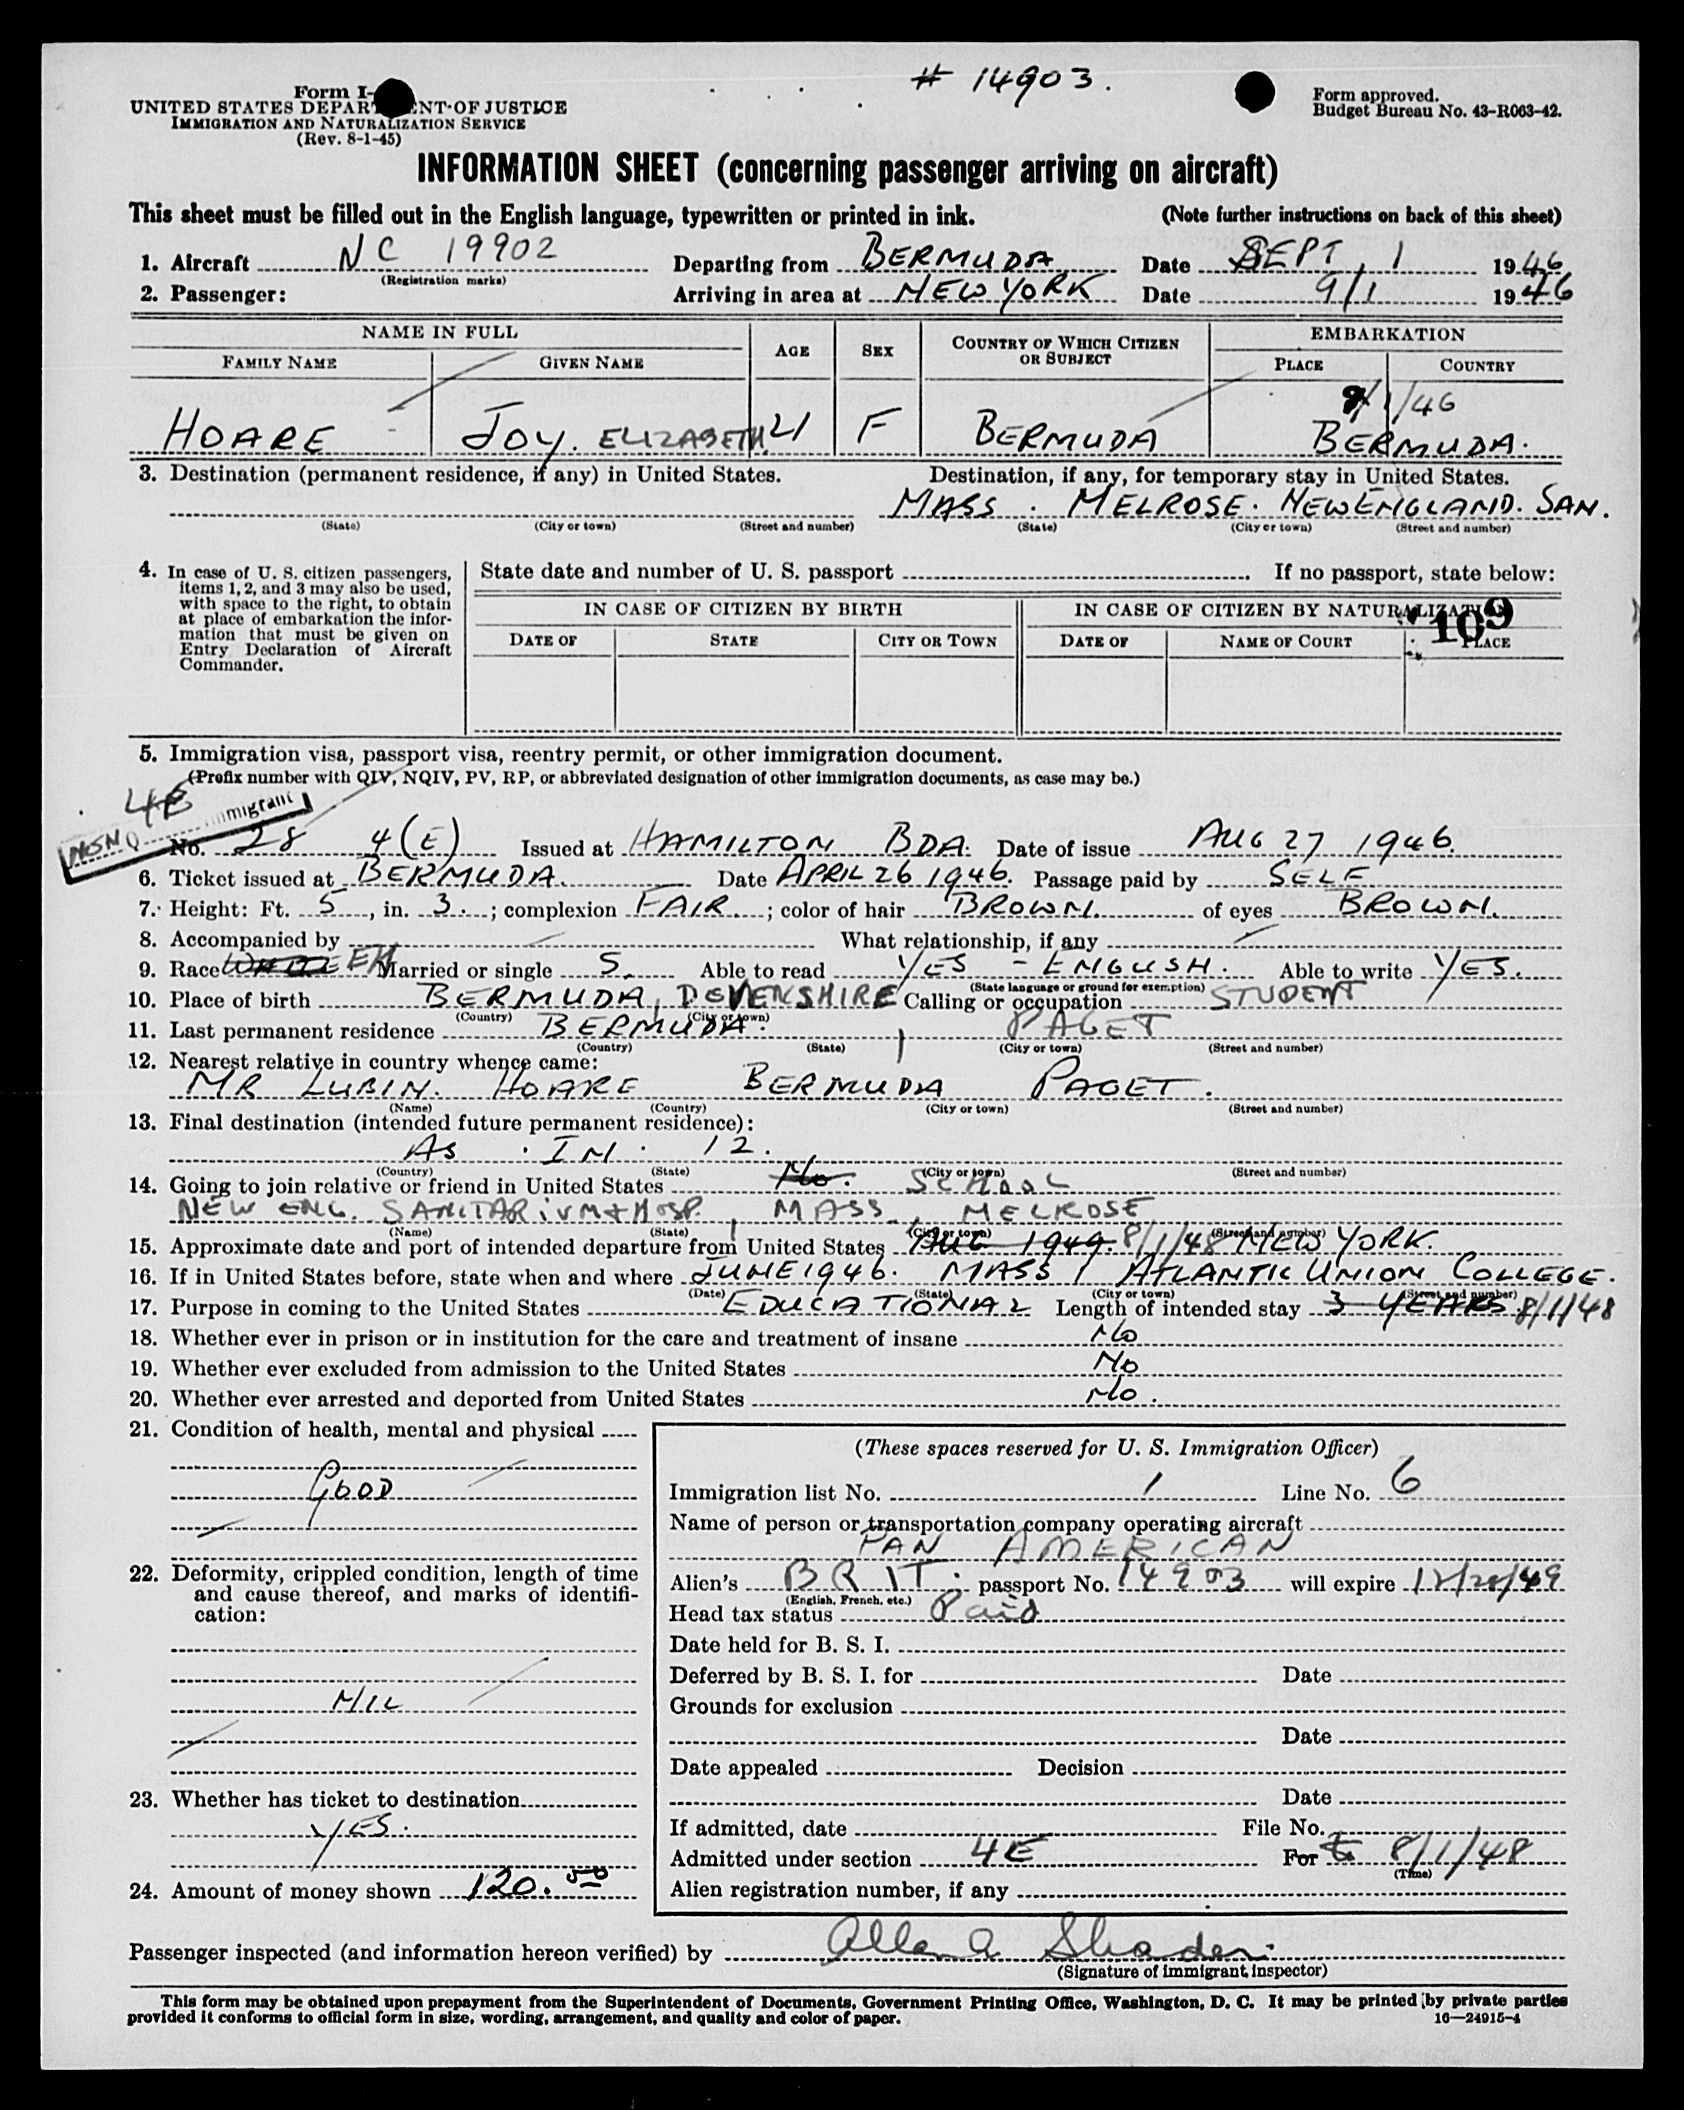 # 14903.
Form I-
UNITED STATES DEPAR ENT OF JUSTICE
IMMIGRATION AND NATURALIZATION SERVICE
(Rev. 8-1-45)
Form approved.
Budget Bureau No. 43-R063-42.
INFORMATION SHEET (concerning passenger arriving on aircraft)
This sheet must be filled out in the English language, typewritten or printed in ink. (Note further instructions on back of this sheet)
1. Aircraft NC 19902 Departing from BERMUDA Date SEPT 1 1946
(Registration marks)
2. Passenger: Arriving in area at NEW YORK Date 9/1 1946
NAME IN FULL AGE SEX COUNTRY OF WHICH CITIZEN OR SUBJECT EMBARKATION
FAMILY NAME GIVEN NAME PLACE COUNTRY
9/1/46
HOARE JOY. ELIZABETH. 21 F BERMUDA BERMUDA.
3. Destination (permanent residence, if any) in United States. Destination, if any, for temporary stay in United States.
MASS. MELROSE. NEW ENGLAND. SAN.
(State) (City or town) (Street and number) (State) (City or town) (Street and number)
4. In case of U. S. citizen passengers, items 1, 2, and 3 may also be used, with space to the right, to obtain at place of embarkation the information that must be given on Entry Declaration of Aircraft Commander.
State date and number of U. S. passport If no passport, state below:
IN CASE OF CITIZEN BY BIRTH IN CASE OF CITIZEN BY NATURALIZATION
109
DATE OF STATE CITY OR TOWN DATE OF NAME OF COURT PLACE
5. Immigration visa, passport visa, reentry permit, or other immigration document.
(Prefix number with QIV, NQIV, PV, RP, or abbreviated designation of other immigration documents, as case may be.)
4E
immigrant
No. 28 4(E) Issued at HAMILTON BDA. Date of issue AUG 27 1946.
6. Ticket issued at BERMUDA. Date APRIL 26 1946. Passage paid by SELF
7. Height: Ft. 5, in. 3.; complexion FAIR.; color of hair BROWN. of eyes BROWN.
8. Accompanied by What relationship, if any
9. Race WHITE Married or single S. Able to read YES - ENGLISH. Able to write YES.
(State language or ground for exemption)
10. Place of birth BERMUDA, DEVENSHIRE Calling or occupation STUDENT
(Country) (City or town)
11. Last permanent residence BERMUDA. PAGET
(Country) (State) (City or town) (Street and number)
12. Nearest relative in country whence came:
MR LUBIN. HOARE BERMUDA PAGET.
(Name) (Country) (City or town) (Street and number)
13. Final destination (intended future permanent residence):
AS . IN . 12.
(Country) (State) (City or town) (Street and number)
14. Going to join relative or friend in United States No. SCHOOL
NEW ENG. SANITARIUM & HOSP., MASS., MELROSE
(Name) (State) (City or town) (Street and number)
15. Approximate date and port of intended departure from United States AUG 1949. 8/1/48 NEW YORK.
16. If in United States before, state when and where JUNE 1946. MASS / ATLANTIC UNION COLLEGE.
(Date) (State) (City or town) (Street and number)
17. Purpose in coming to the United States EDUCATIONAL Length of intended stay 3 YEARS 8/1/48
18. Whether ever in prison or in institution for the care and treatment of insane No
19. Whether ever excluded from admission to the United States No
20. Whether ever arrested and deported from United States No.
21. Condition of health, mental and physical
GOOD
22. Deformity, crippled condition, length of time and cause thereof, and marks of identification:
NIL
23. Whether has ticket to destination
YES.
24. Amount of money shown 120.50
(These spaces reserved for U. S. Immigration Officer)
Immigration list No. 1 Line No. 6
Name of person or transportation company operating aircraft
PAN AMERICAN
Alien's BRIT. passport No. 14903 will expire 12/20/49
(English, French, etc.)
Head tax status Paid
Date held for B. S. I.
Deferred by B. S. I. for Date
Grounds for exclusion
Date
Date appealed Decision
Date
If admitted, date File No.
Admitted under section 4E For to 8/1/48
(Time)
Alien registration number, if any
Passenger inspected (and information hereon verified) by Allen A Shader
(Signature of immigrant inspector)
This form may be obtained upon prepayment from the Superintendent of Documents, Government Printing Office, Washington, D. C. It may be printed by private parties
provided it conforms to official form in size, wording, arrangement, and quality and color of paper. 16—24915-4